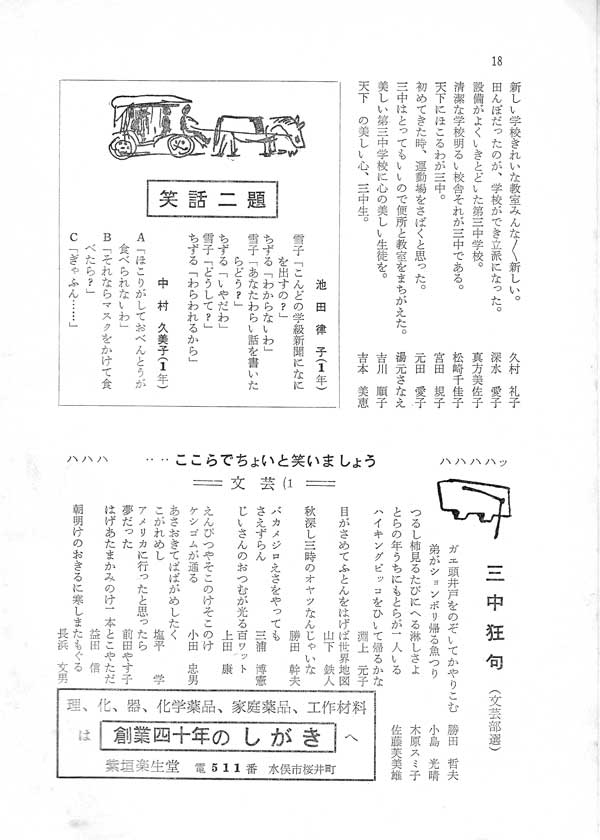 18
新しい学校きれいな教室みんな〱新しい。 久村 礼子
田んぼだったのが、学校ができ立派になった。 深水 愛子
設備がよくいきとどいた第三中学校。 真方美佐子
清潔な学校明るい校舎それが三中である。 松崎千佳子
天下にほこるわが三中。 宮田 規子
初めてきた時、運動場をさばくと思った。 元田 愛子
三中はとってもいいので便所と教室をまちがえた。 湯元さなえ
美しい第三中学校に心の美しい生徒を。 吉川 順子
天下 の美しい心、三中生。 吉本 美恵
笑話二題
池田律子(1年)
雪子「こんどの学級新聞になに
を出すの?」
ちずる「わからないわ」
雪子「あなたわらい話を書いた
らどう?」
ちずる「いやだわ」
雪子「どうして?」
ちずる「わらわれるから」
中村久美子(1年)
A「ほこりがしておべんとうが
食べられないわ」
B「それならマスクをかけて食
べたら?」
C「ぎゃふん……」
ハハハ ‥‥ここらでちょいと笑いましょう ハハハハッ
文芸(1
三中狂句 (文芸部選)
ガエ頭井戸をのぞいてかやりこむ 勝田 哲夫
弟がションボリ帰る魚つり 小島 光晴
つるし柿見るたびにへる淋しさよ 木原スミ子
とらの年うちにもとらが一人いる 佐藤芙美雄
ハイキングビッコをひいて帰るかな 淵上 元子
目がさめてふとんをはげば世界地図 山下 鉄人
秋深し三時のオヤツなんじゃいな 勝田 幹夫
バカメジロえさをやっても
さえずらん 三浦 博憲
じいさんのおつむが光る百ワット 上田 康
えんぴつやそこのけそこのけ
ケシゴムが通る 小田 忠男
あさおきてばばがめしたく
こがれめし 塩平 学
アメリカに行ったと思ったら
夢だった 前田やす子
はげあたまかみのけ一本とこやただ 益田 信
朝明けのおきるに寒しまたもぐる 長浜 文男
理、化、器、化学薬品、家庭薬品、工作材料
は 創業四十年のしがき へ
紫垣楽生堂 電511番 水俣市桜井町